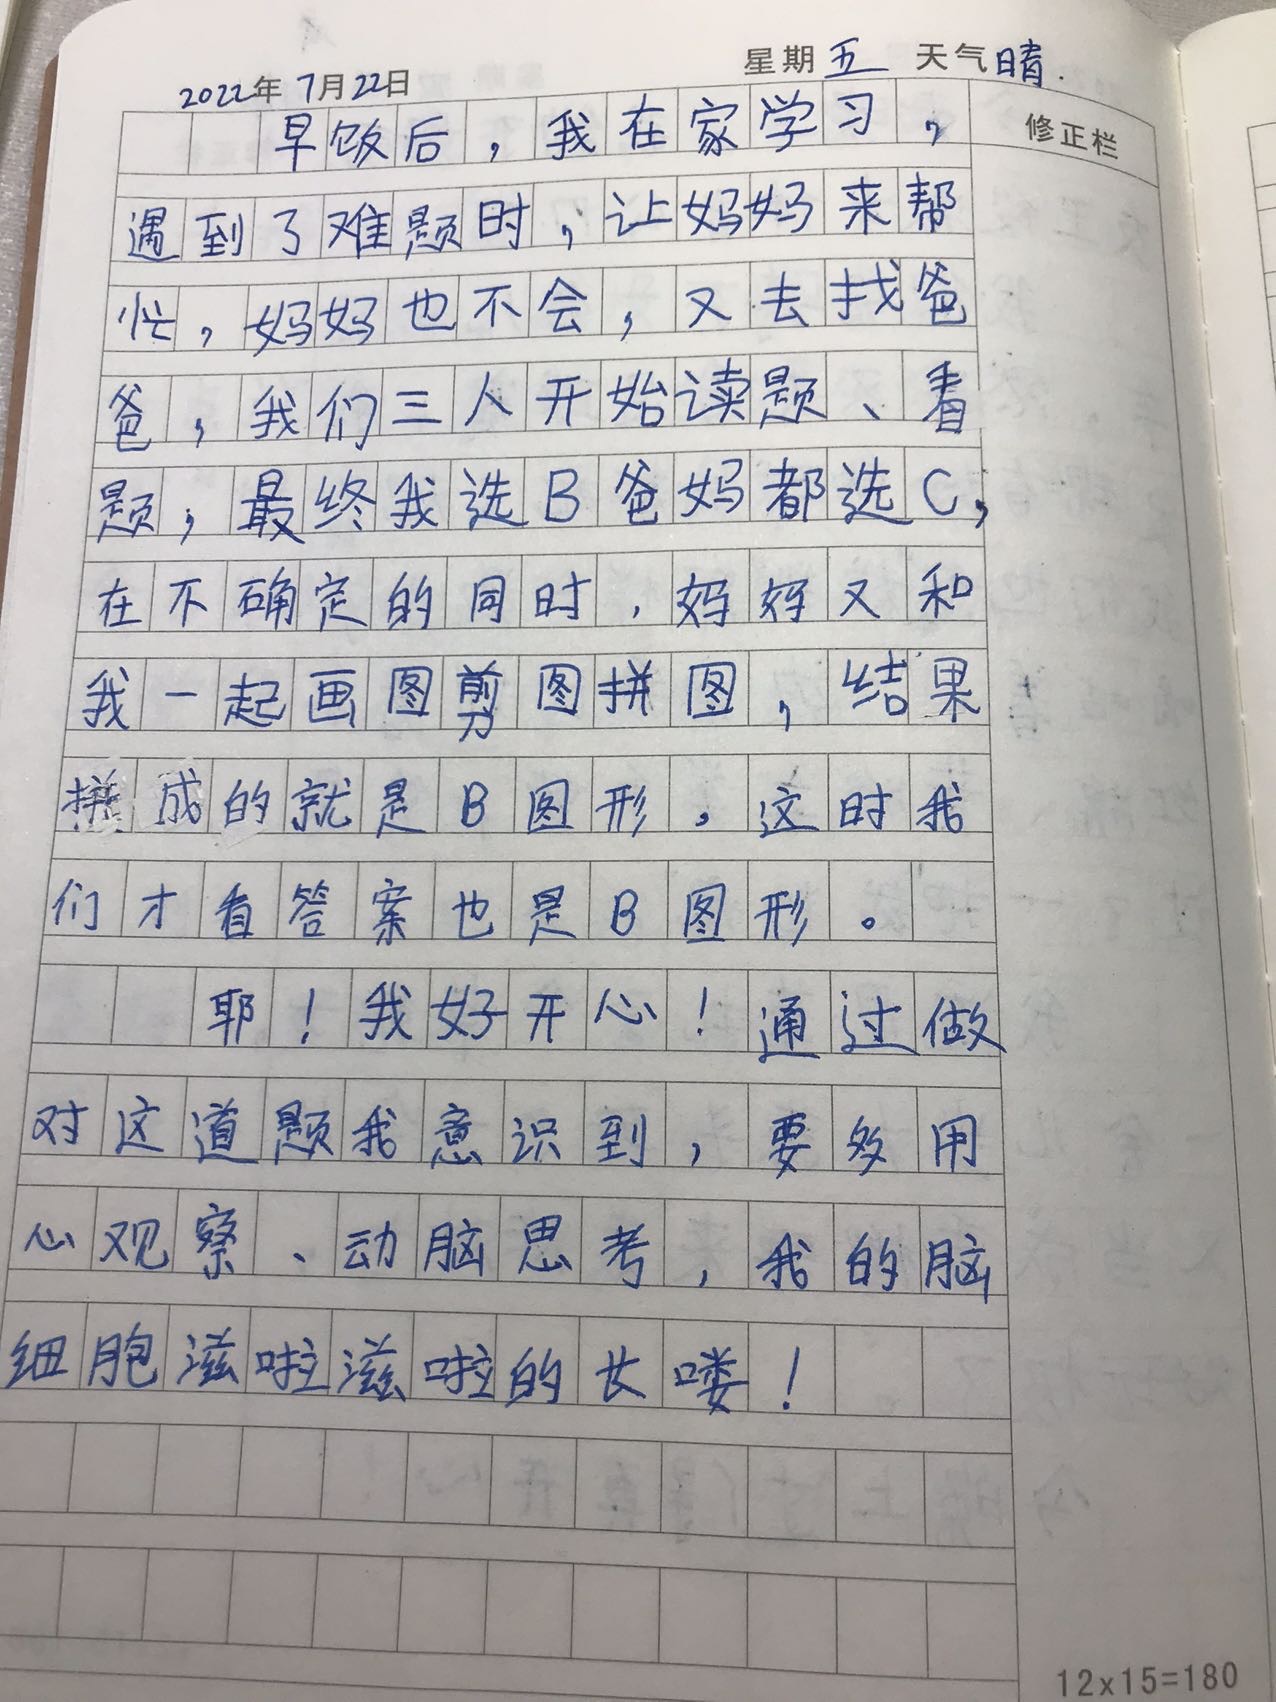 2022年7月22日 星期 五 天气 晴.
修正栏
早饭后，我在家学习，
遇到了难题时，让妈妈来帮
忙，妈妈也不会，又去找爸
爸，我们三人开始读题、看
题，最终我选B爸妈都选C，
在不确定的同时，妈妈又和
我一起画图剪图拼图，结果
拼成的就是B图形。这时我
们才看答案也是B图形。
耶！我好开心！通过做
对这道题我意识到，要多用
心观察、动脑思考，我的脑
细胞滋啦滋啦的长喽！
12x15=180